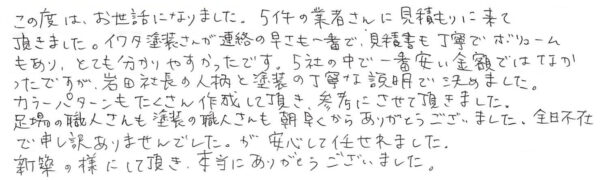 この度は、お世話になりました。5件の業者さんに見積もりに来て
頂きました。イワタ塗装さんが連絡の早さも一番で、見積書も丁寧でボリューム
もあり、とても分かりやすかったです。5社の中で一番安い金額ではなか
ったですが、岩田社長の人柄と塗装の丁寧な説明で決めました。
カラーパターンもたくさん作成して頂き、参考にさせて頂きました。
足場の職人さんも塗装の職人さんも朝早くからありがとうございました。全日不在
で申し訳ありませんでした。が安心して任せれました。
新築の様にして頂き、本当にありがとうございました。